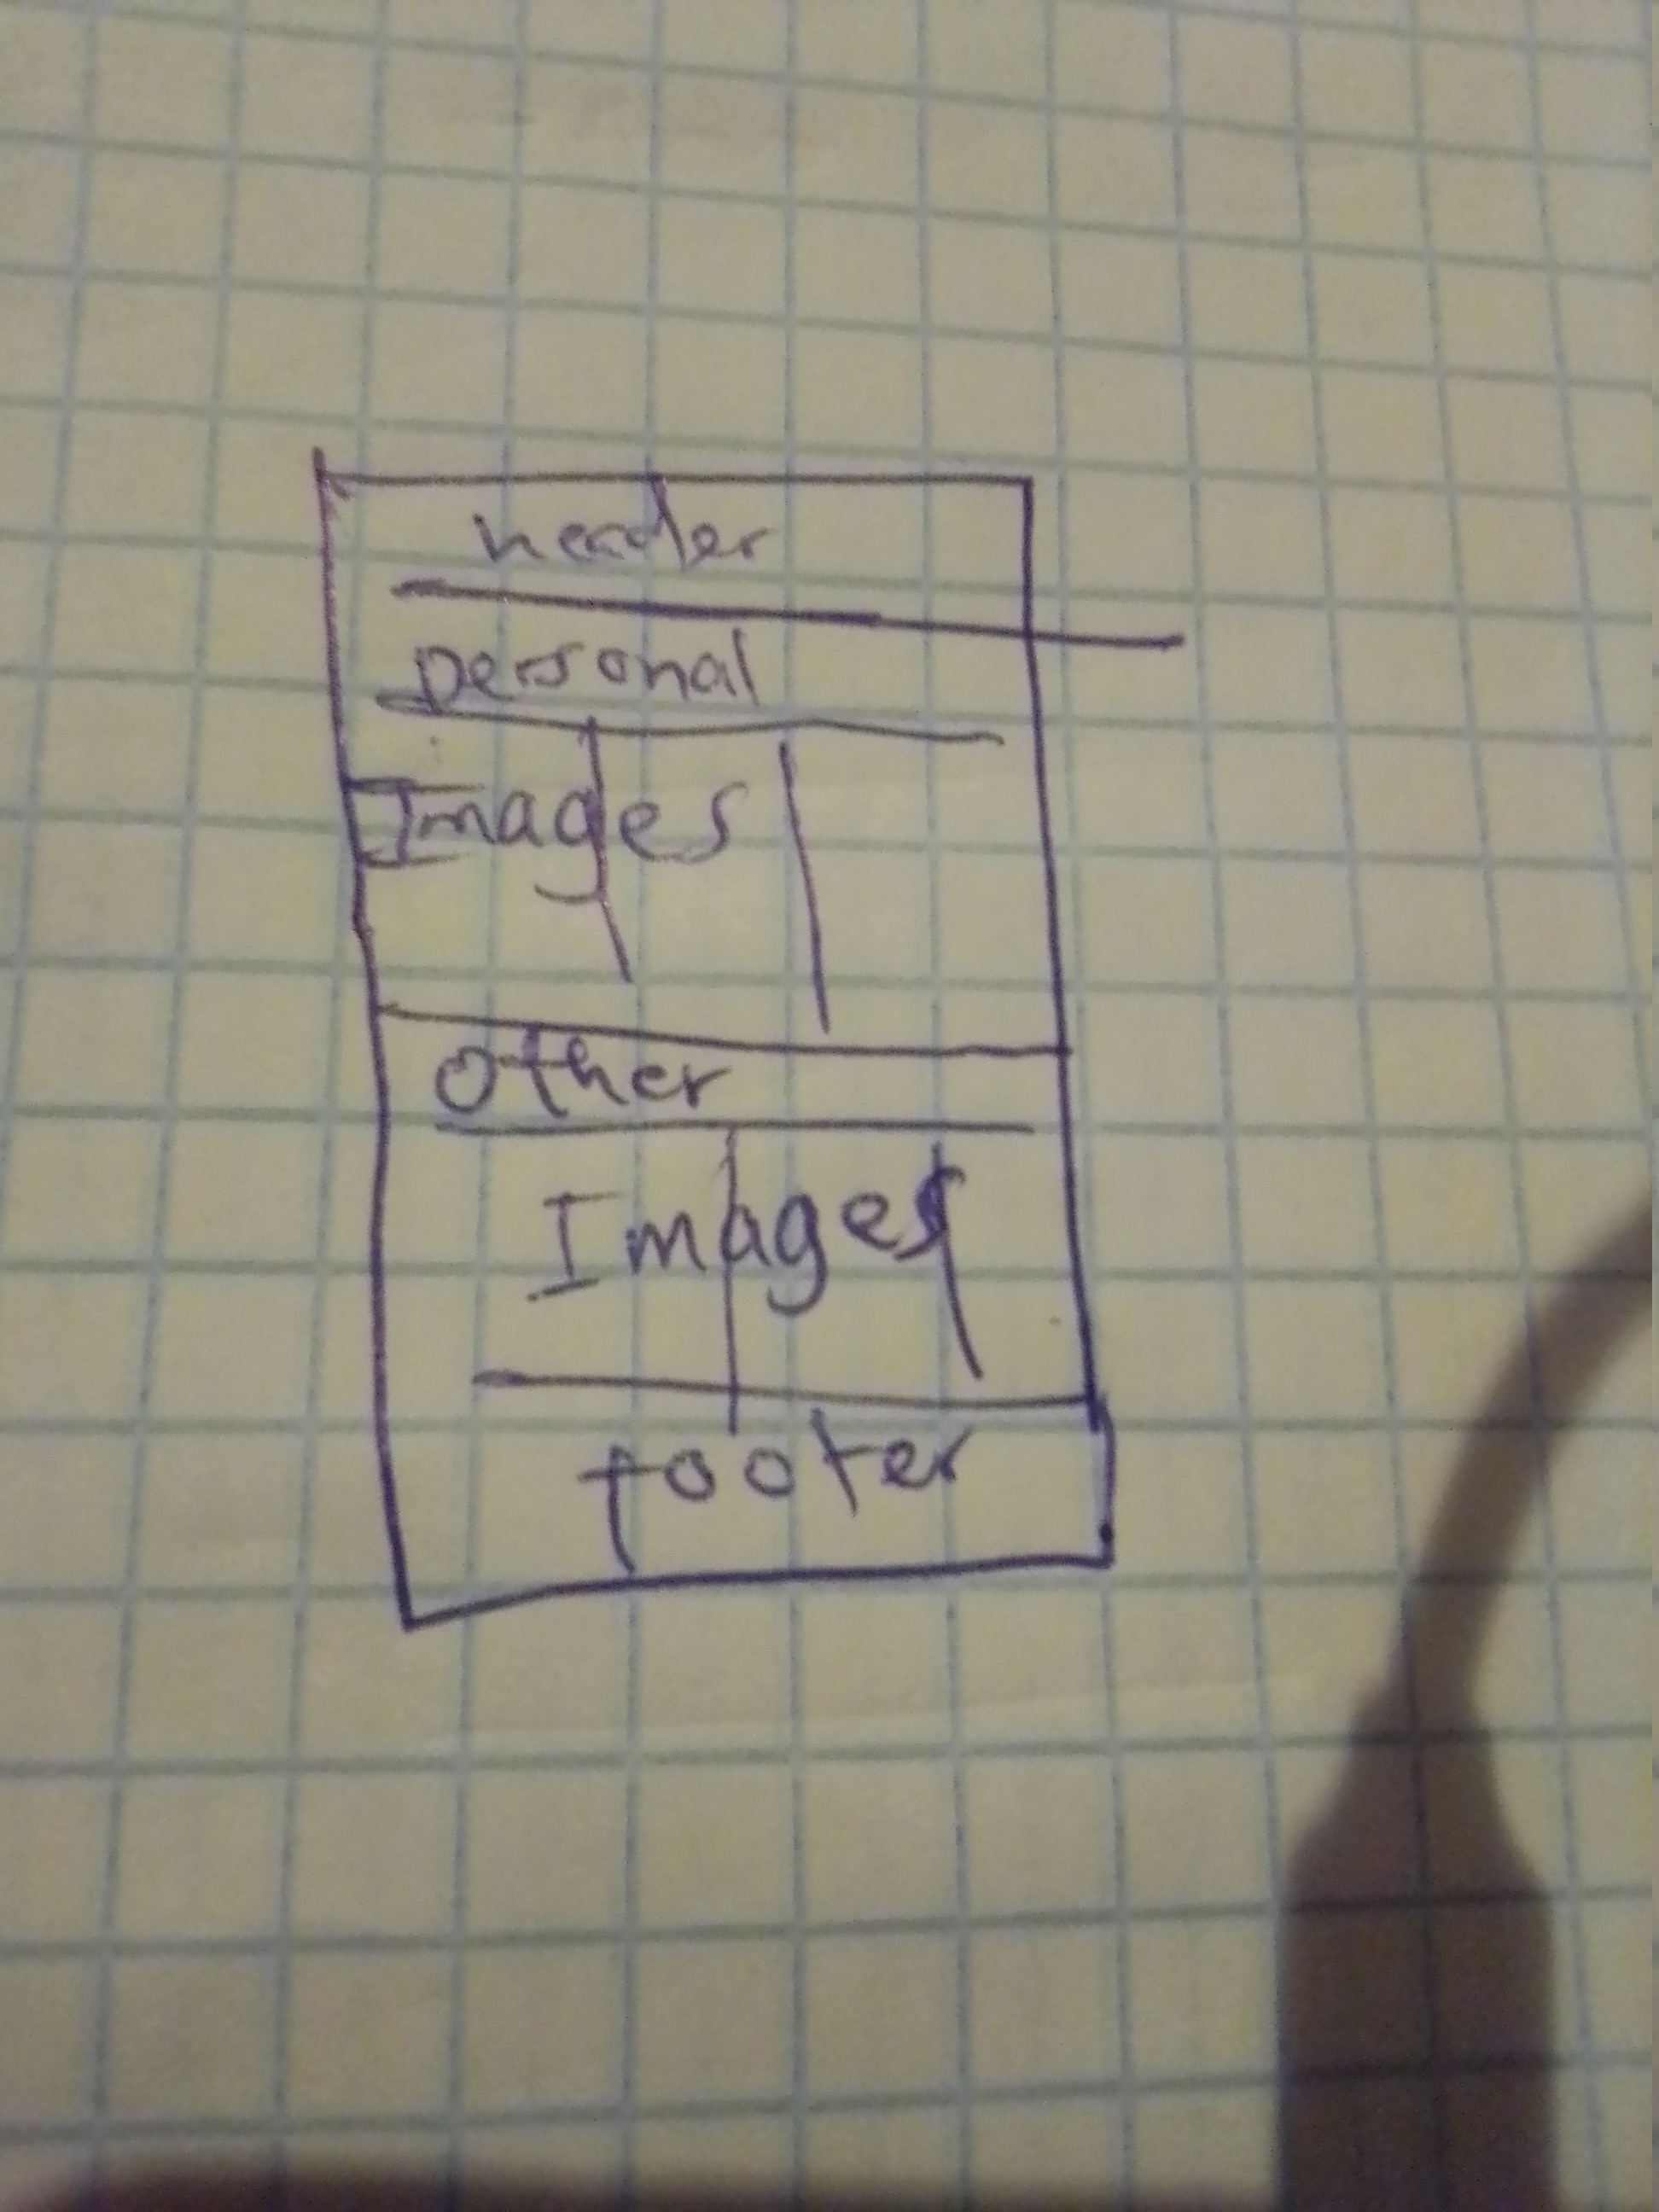 header
personal
Images
Other
Images
footer